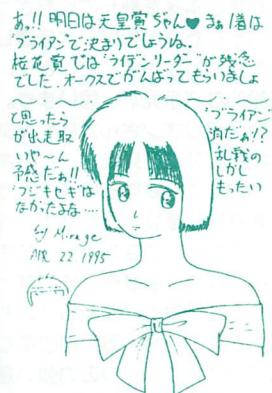 あっ!! 明日は天皇賞ぢゃん♥ まぁ1着は
"ブライアン"で決まりでしょうね。
桜花賞では"ライデンリーダー"が残念
でした。オークスでがんばってもらいましょ
と思ったら
が出走取
いや〜ん
予感だぁ!!
"フジキセキ"は
なかったよな…
"ブライアン"
消だぁ!?
乱戦の
しかし
もったい
by Mirage
APR 22 1995